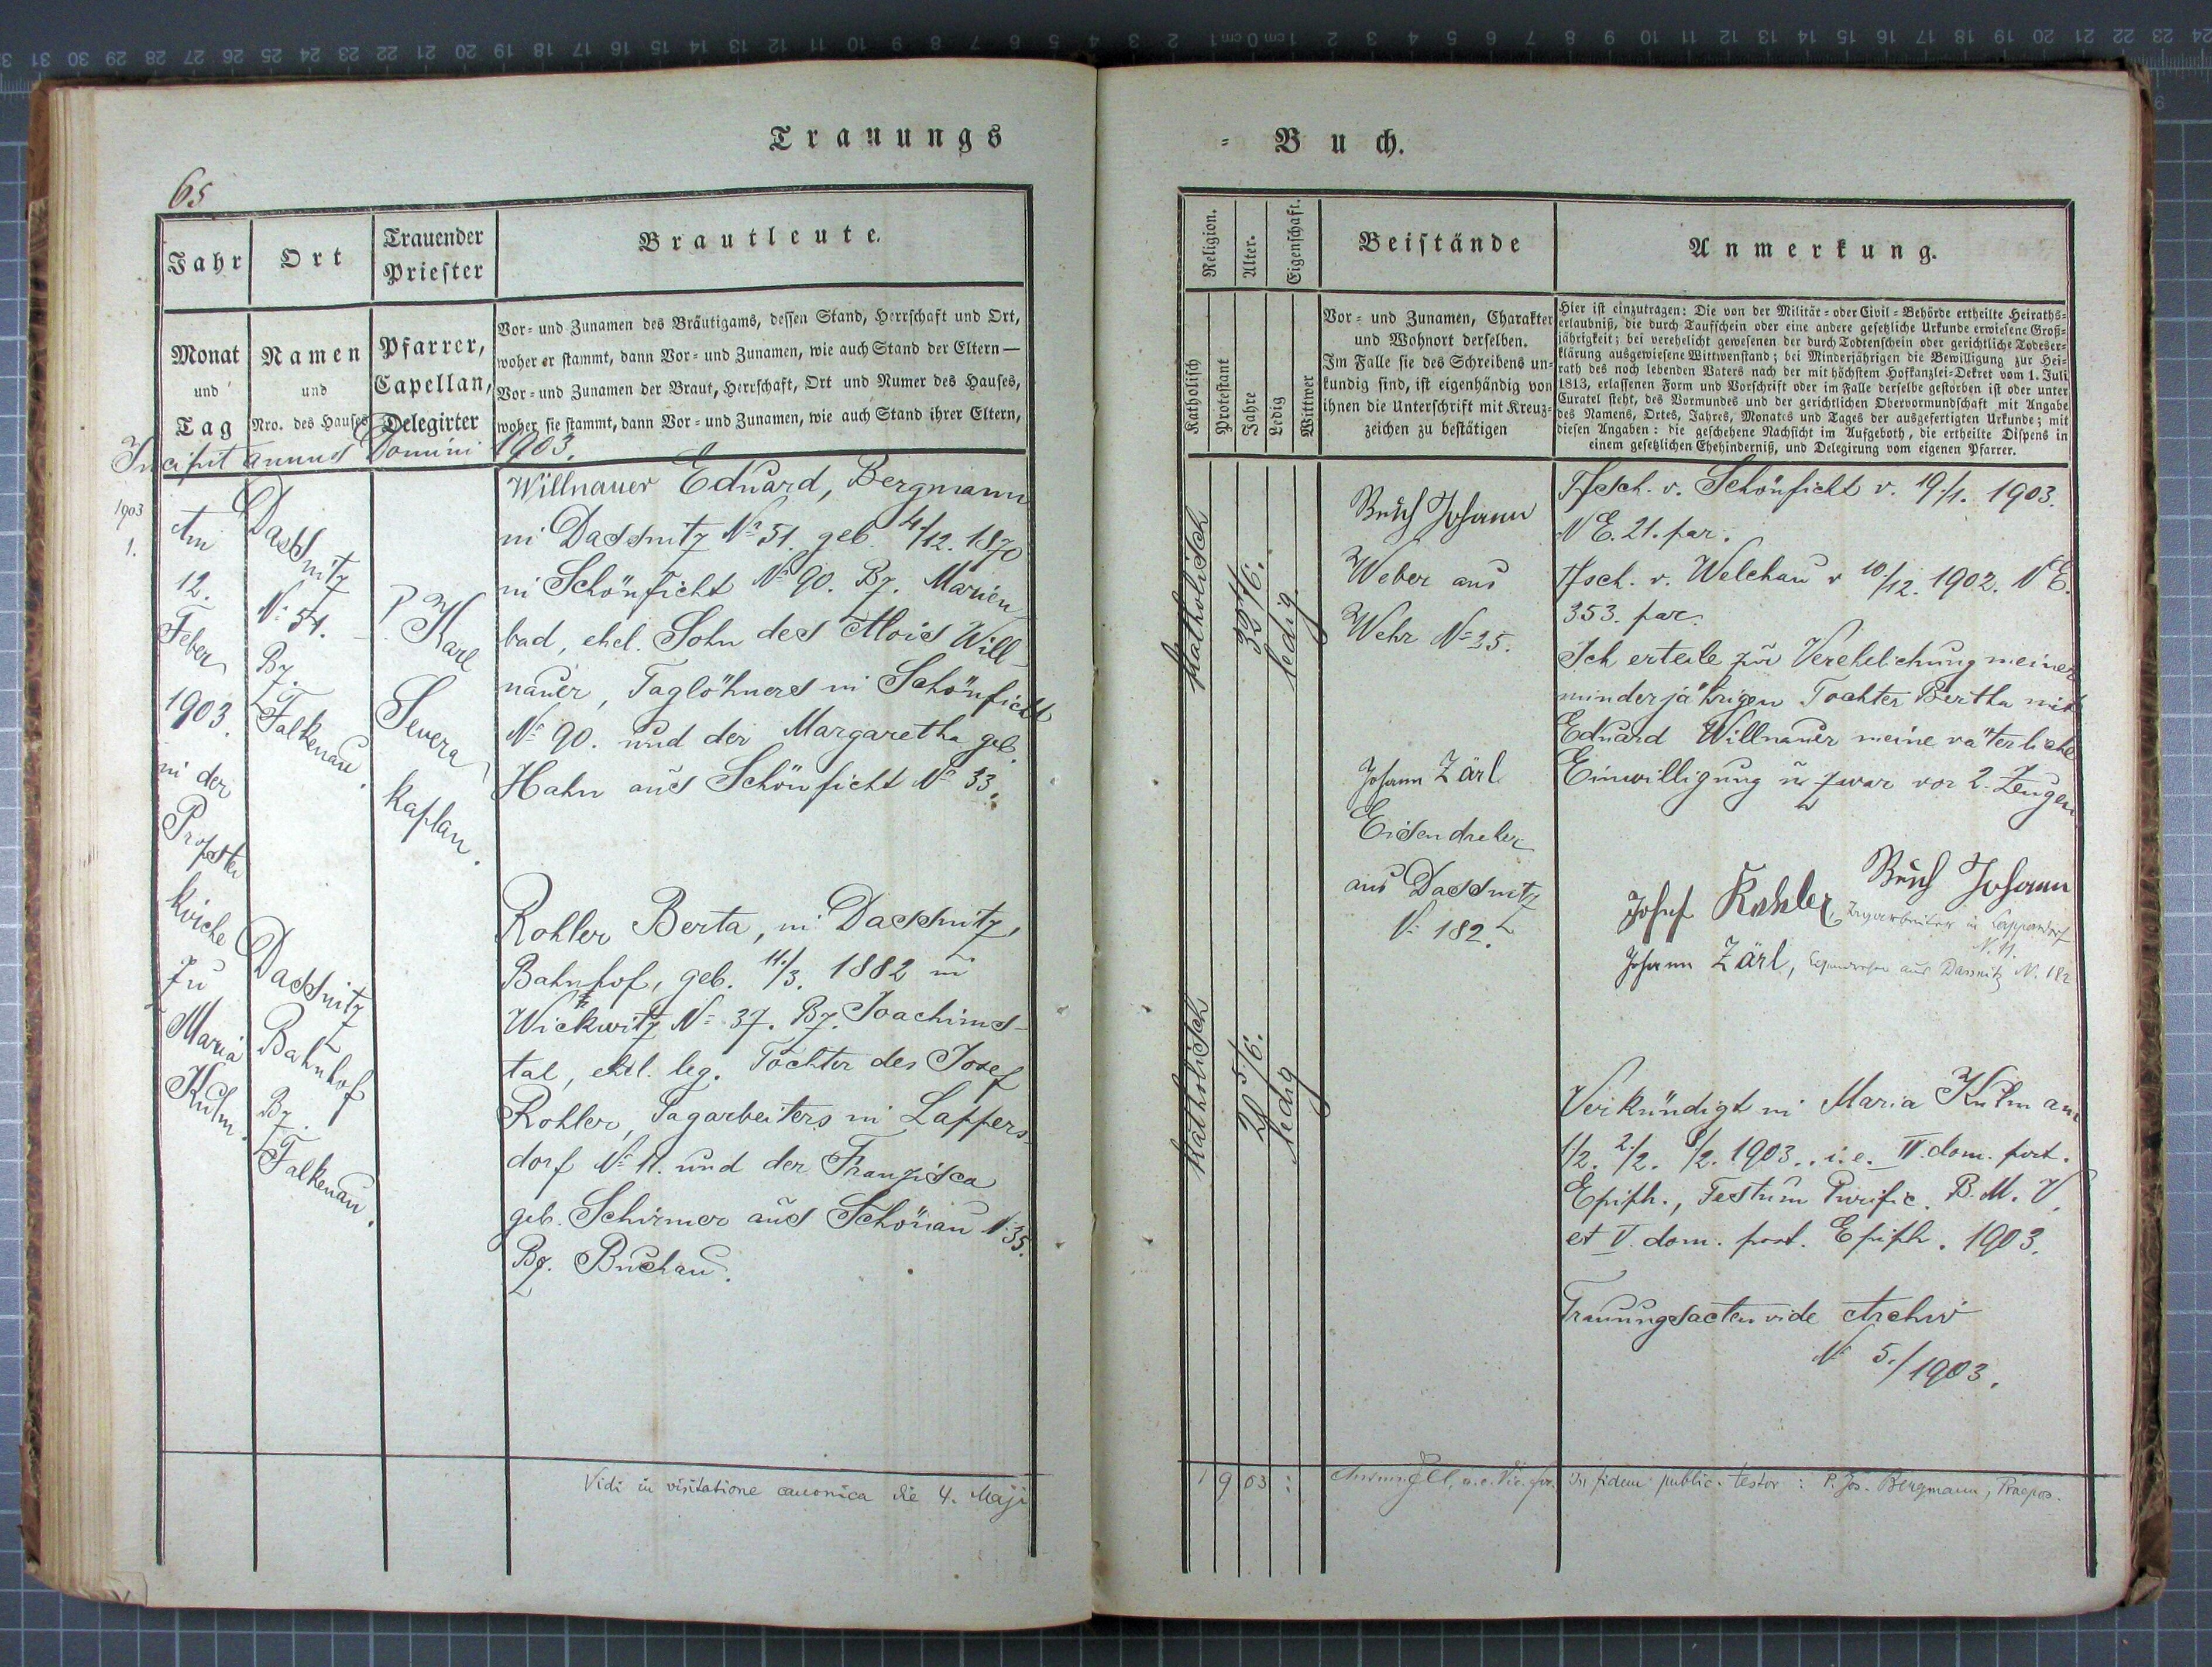 Trauungs
= Buch.
65
Jahr
Ort
Trauender
Priester
Brautleute.
Monat
und
Tag
Namen
und
Nro. des Hauses
Pfarrer,
Capellan,
Delegirter
Vor- und Zunamen des Bräutigams, dessen Stand, Herrschaft und Ort,
woher er stammt, dann Vor- und Zunamen, wie auch Stand der Eltern —
Vor- und Zunamen der Braut, Herrschaft, Ort und Numer des Hauses,
woher sie stammt, dann Vor- und Zunamen, wie auch Stand ihrer Eltern,
Incipit annus Domini 1903.
1903
1.
Am
12.
Feber
1903.
in der
Propstei
kirche
zu
Maria
Kulm.
Dassnitz
N: 51.
Bz.
Falkenau.
Dassnitz
Bahnhof
Bz.
Falkenau.
P. Karl
Severa
Kaplan.
Willnauer Eduard, Bergmann
in Dassnitz No 51. geb. 4./12. 1870
in Schönficht No 90. Bz. Marien
bad, ehel. Sohn des Alois Will-
nauer, Taglöhners in Schönficht
No 90. und der Margaretha geb.
Hahn aus Schönficht No 33.
Kohler Berta, in Dassnitz,
Bahnhof, geb. 11./3. 1882 in
Wickwitz No 37. Bz. Joachims-
tal, ehel. leg. Tochter des Josef
Kohler, Tagarbeiters in Lappers-
dorf No 11. und der Franzisca
geb. Schirmer aus Schönau N: 35.
Bz. Buchau.
Vidi in visitatione canonica die 4. Maji
Religion.
Alter.
Eigenschaft.
Beistände
Anmerkung.
Katholisch
Protestant
Jahre
Ledig
Wittwer
Vor- und Zunamen, Charakter
und Wohnort derselben.
Im Falle sie des Schreibens un-
kundig sind, ist eigenhändig von
ihnen die Unterschrift mit Kreuz-
zeichen zu bestätigen
Hier ist einzutragen: Die von der Militär- oder Civil-Behörde ertheilte Heiraths-
erlaubniß, die durch Taufschein oder eine andere gesetzliche Urkunde erwiesene Groß-
jährigkeit; bei verehelicht gewesenen der durch Todtenschein oder gerichtliche Todeser-
klärung ausgewiesene Wittwenstand; bei Minderjährigen die Bewilligung zur Hei-
rath des noch lebenden Vaters nach der mit höchstem Hofkanzlei-Dekret vom 1. Juli
1813, erlassenen Form und Vorschrift oder im Falle derselbe gestorben ist oder unter
Curatel steht, des Vormundes und der gerichtlichen Obervormundschaft mit Angabe
des Namens, Ortes, Jahres, Monates und Tages der ausgefertigten Urkunde; mit
diesen Angaben: die geschehene Nachsicht im Aufgeboth, die ertheilte Dispens in
einem gesetzlichen Ehehinderniß, und Delegirung vom eigenen Pfarrer.
Katholisch
32
ledig.
Katholisch
20 5/6.
ledig
Johann
Weber aus
Wehr No 25.
Johann Zärl
Eisendreher
aus Dassnitz
N: 182.
Tfsch. v. Schönficht v. 19./1. 1903.
N E. 21. par.
Tfsch. v. Welchau v 10./12. 1902. N E.
353. par.
Ich erteile zur Verehelichung meiner
minderjährigen Tochter Bertha mit
Eduard Willnauer meine väterliche
Einwilligung u zwar vor 2. Zeugen
Johann
Josef Kohler, Tagarbeiter in Lappersdorf
N. 11.
Johann Zärl, Eisendreher aus Dassnitz N. 182
Verkündigt in Maria Kulm am
1/2. 2./2. 8/2. 1903. i. e. IV. dom. post.
Epiph., Festum Purific. B. M. V.
et V. dom. post. Epiph. 1903.
Trauungsacten vide Archiv
No 5./1903.
1903:
In fidem public. testor: P. Jos. Bergmann, Praepos.